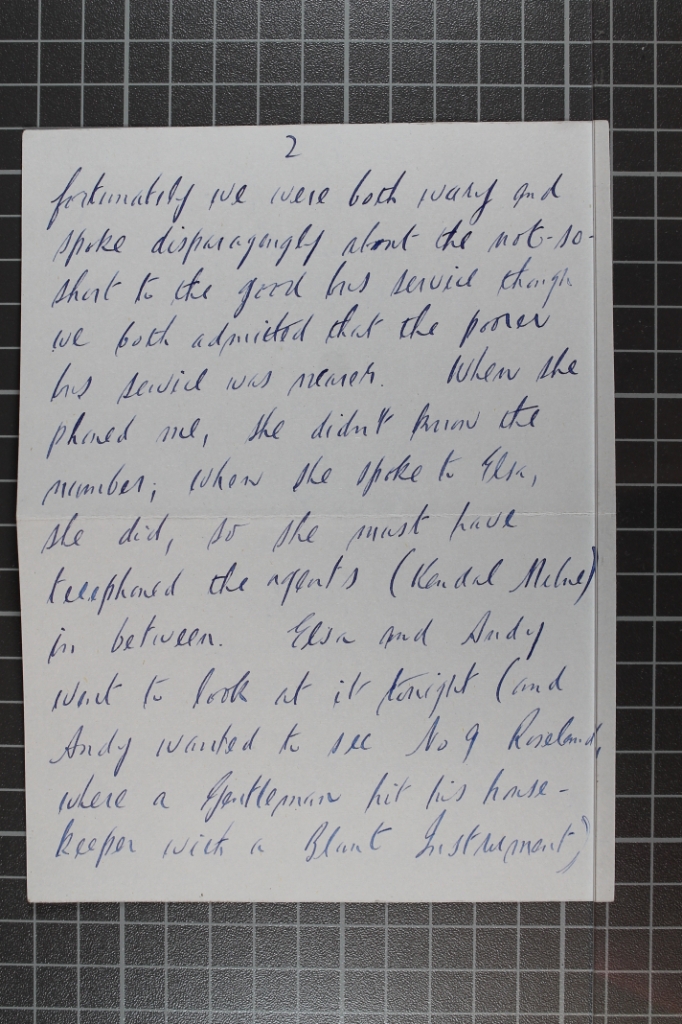 2
fortunately we were both wary and
spoke disparagingly about the not-so-
short to the good bus service though
we both admitted that the poorer
bus service was nearer. When she
phoned me, she didn't know the
number; when she spoke to Elsa,
she did, so she must have
telephoned the agents (Kendal Milne)
in between. Elsa and Andy
went to look at it tonight (and
Andy wanted to see No 9 Roseland,
where a Gentleman hit his house-
keeper with a Blunt Instrument)